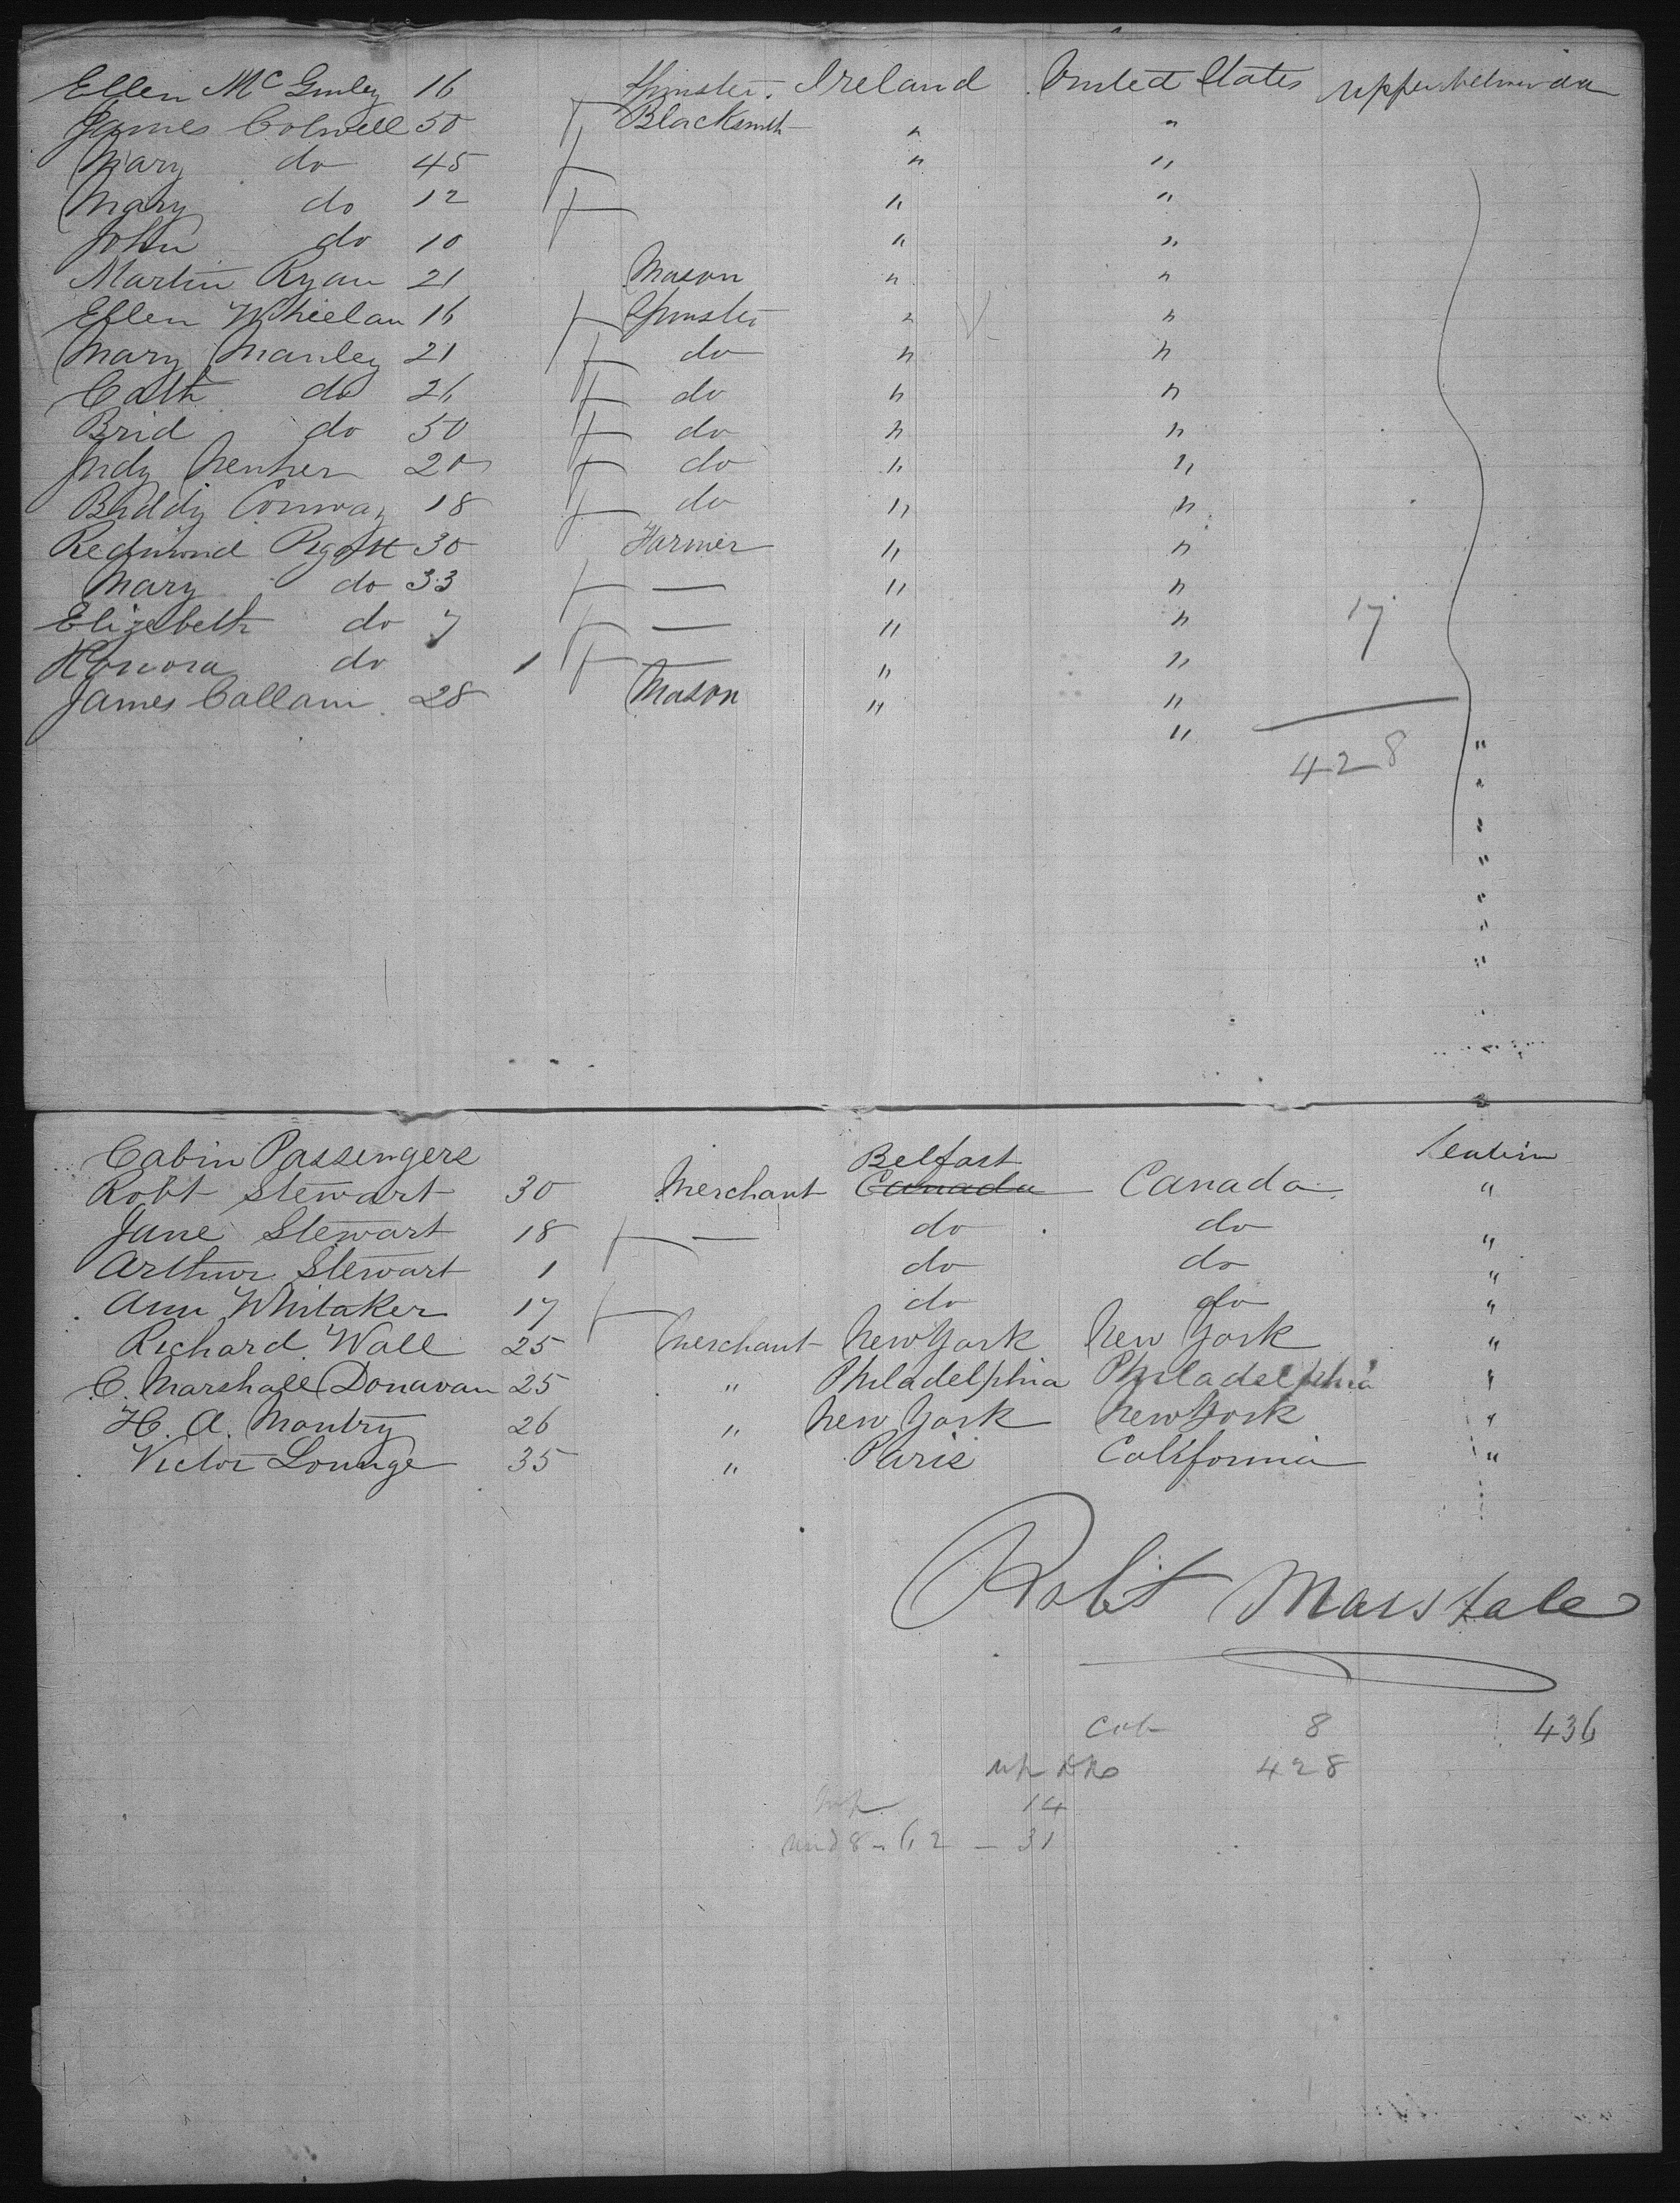 Ellen McGinley 16 Spinster. Ireland United States Upper between dk
James Colwell 50 Blacksmith " "
Mary do 45 " "
Mary do 12 " "
John do 10 " "
Martin Ryan 21 Mason " "
Ellen Whelan 16 Spinster " "
Mary Manley 21 do " "
Cath do 26 do " "
Brid do 50 do " "
Judy 20 do " "
Biddy Conway 18 do " "
Redmond Pigott 30 Farmer " "
Mary do 33 — " "
Elizabeth do 7 — " " 17
Honora do 1 — " "
James Callam 28 Mason " "
" "
428
Cabin Passengers
Robt Stewart 30 Merchant Belfast Canada Canada "
Jane Stewart 18 — do do "
Arthur Stewart 1 do do "
Ann Whitaker 17 do do "
Richard Wall 25 Merchant New York New York "
C. Marshall Donavan 25 " Philadelphia Philadelphia "
H. A. Montry 26 " New York New York "
Victor Lounge 35 " Paris California "
Robt Marshall
Cab 8 436
up 428
14
8 - 62 - 31